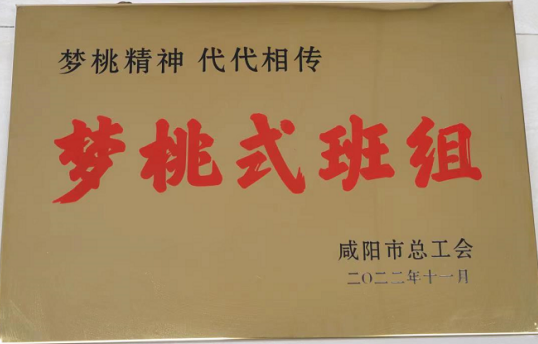 梦桃精神 代代相传
梦桃式班组
咸阳市总工会
二〇二二年十一月